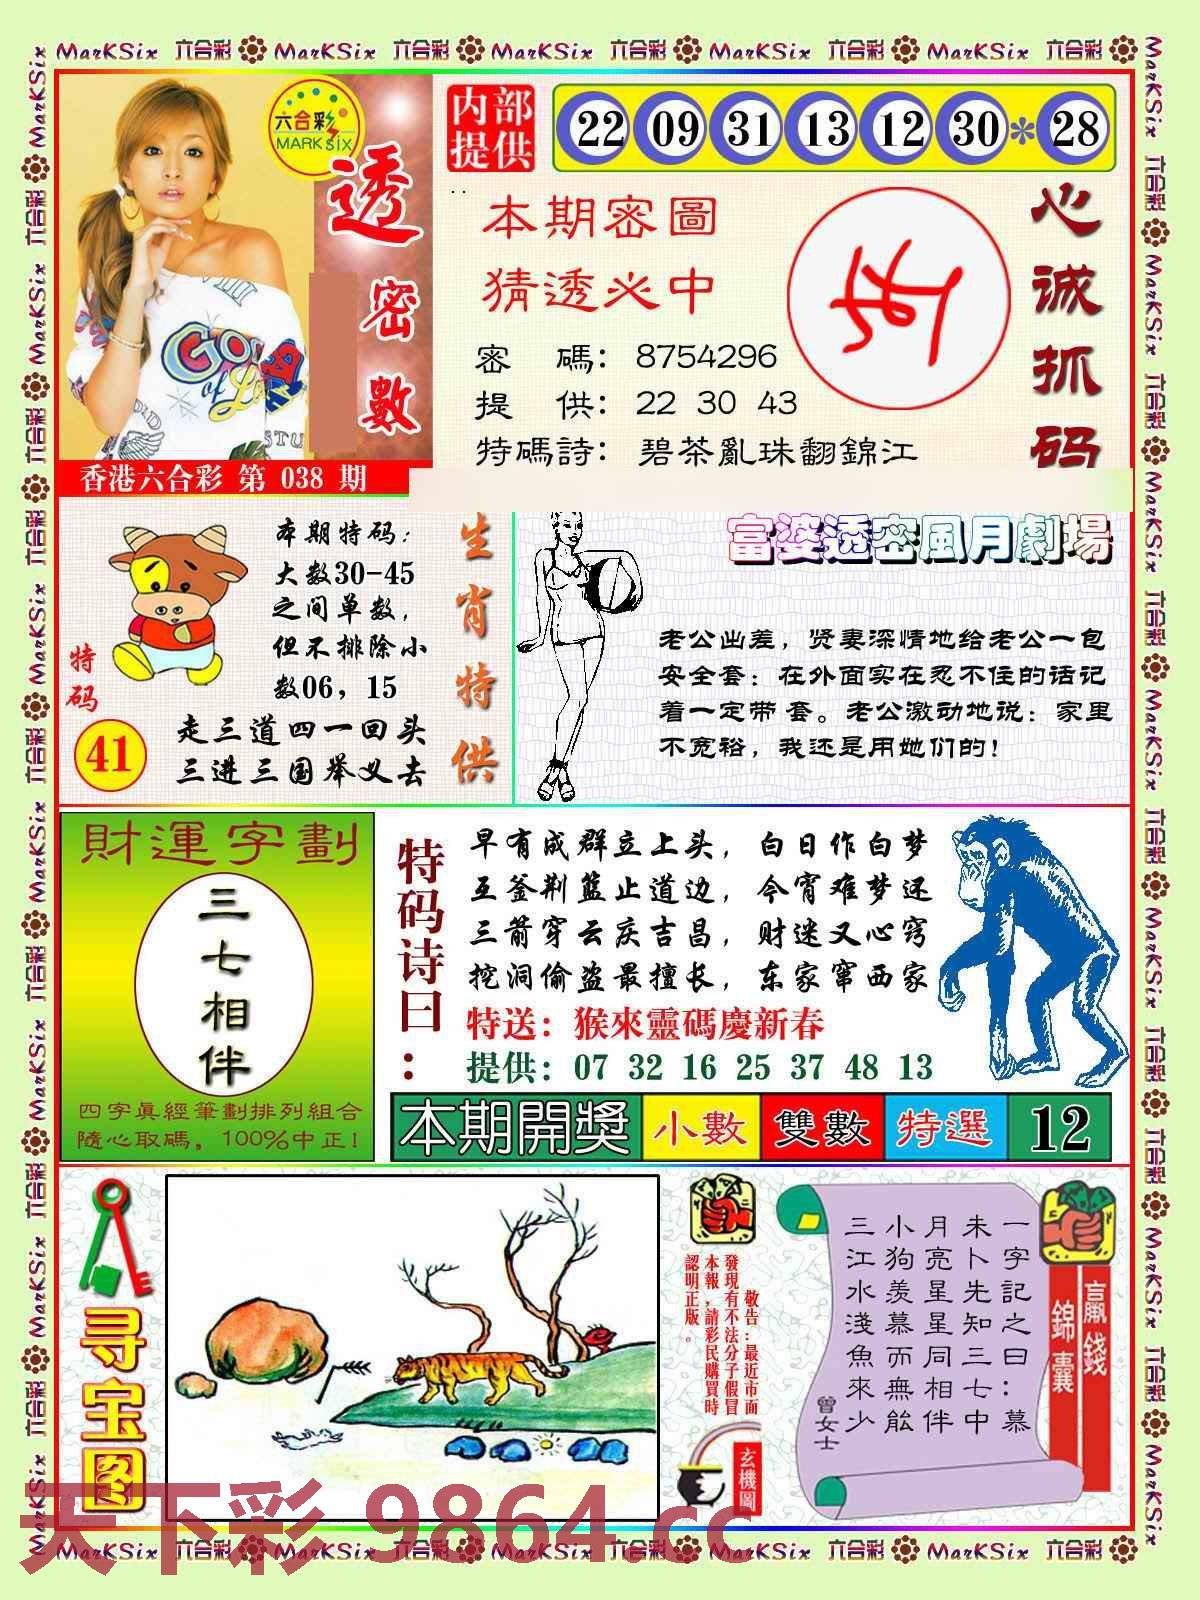 MarKSix 六合彩 MarKSix 六合彩 MarKSix 六合彩 MarKSix 六合彩 MarKSix 六合彩
六合彩
MARK SIX
透密數
香港六合彩 第 038 期
内部提供
22 09 31 13 12 30 * 28
本期密圖
猜透必中
密 碼: 8754296
提 供: 22 30 43
特碼詩: 碧茶亂珠翻錦江
心诚抓码
本期特码:
大数30-45
之间单数,
但不排除小
数06, 15
特码
41
走三道四一回头
三进三国举义去
生肖特供
富婆透密風月劇場
老公出差, 贤妻深情地给老公一包
安全套: 在外面实在忍不住的话记
着一定带 套。老公激动地说: 家里
不宽裕, 我还是用她们的!
財運字劃
三七相伴
四字眞經筆劃排列組合
隨心取碼, 100%中正!
特码诗曰:
早有成群立上头, 白日作白梦
互釜荆篮止道边, 今宵难梦还
三箭穿云庆吉昌, 财迷又心窍
挖洞偷盗最擅长, 东家窜西家
特送: 猴來靈碼慶新春
提供: 07 32 16 25 37 48 13
本期開獎 小數 雙數 特選 12
寻宝图
敬告:最近市面
發現有不法分子假冒
本報,請彩民購買時
認明正版。
玄機圖
贏錢
錦囊
一字記之曰:慕
未卜先知三七中
月亮星星同相伴
小狗羨慕而無能
三江水淺魚來少
曾女士
天下彩 9864.cc
MarKSix 六合彩 MarKSix 六合彩 MarKSix 六合彩 MarKSix 六合彩 MarKSix 六合彩